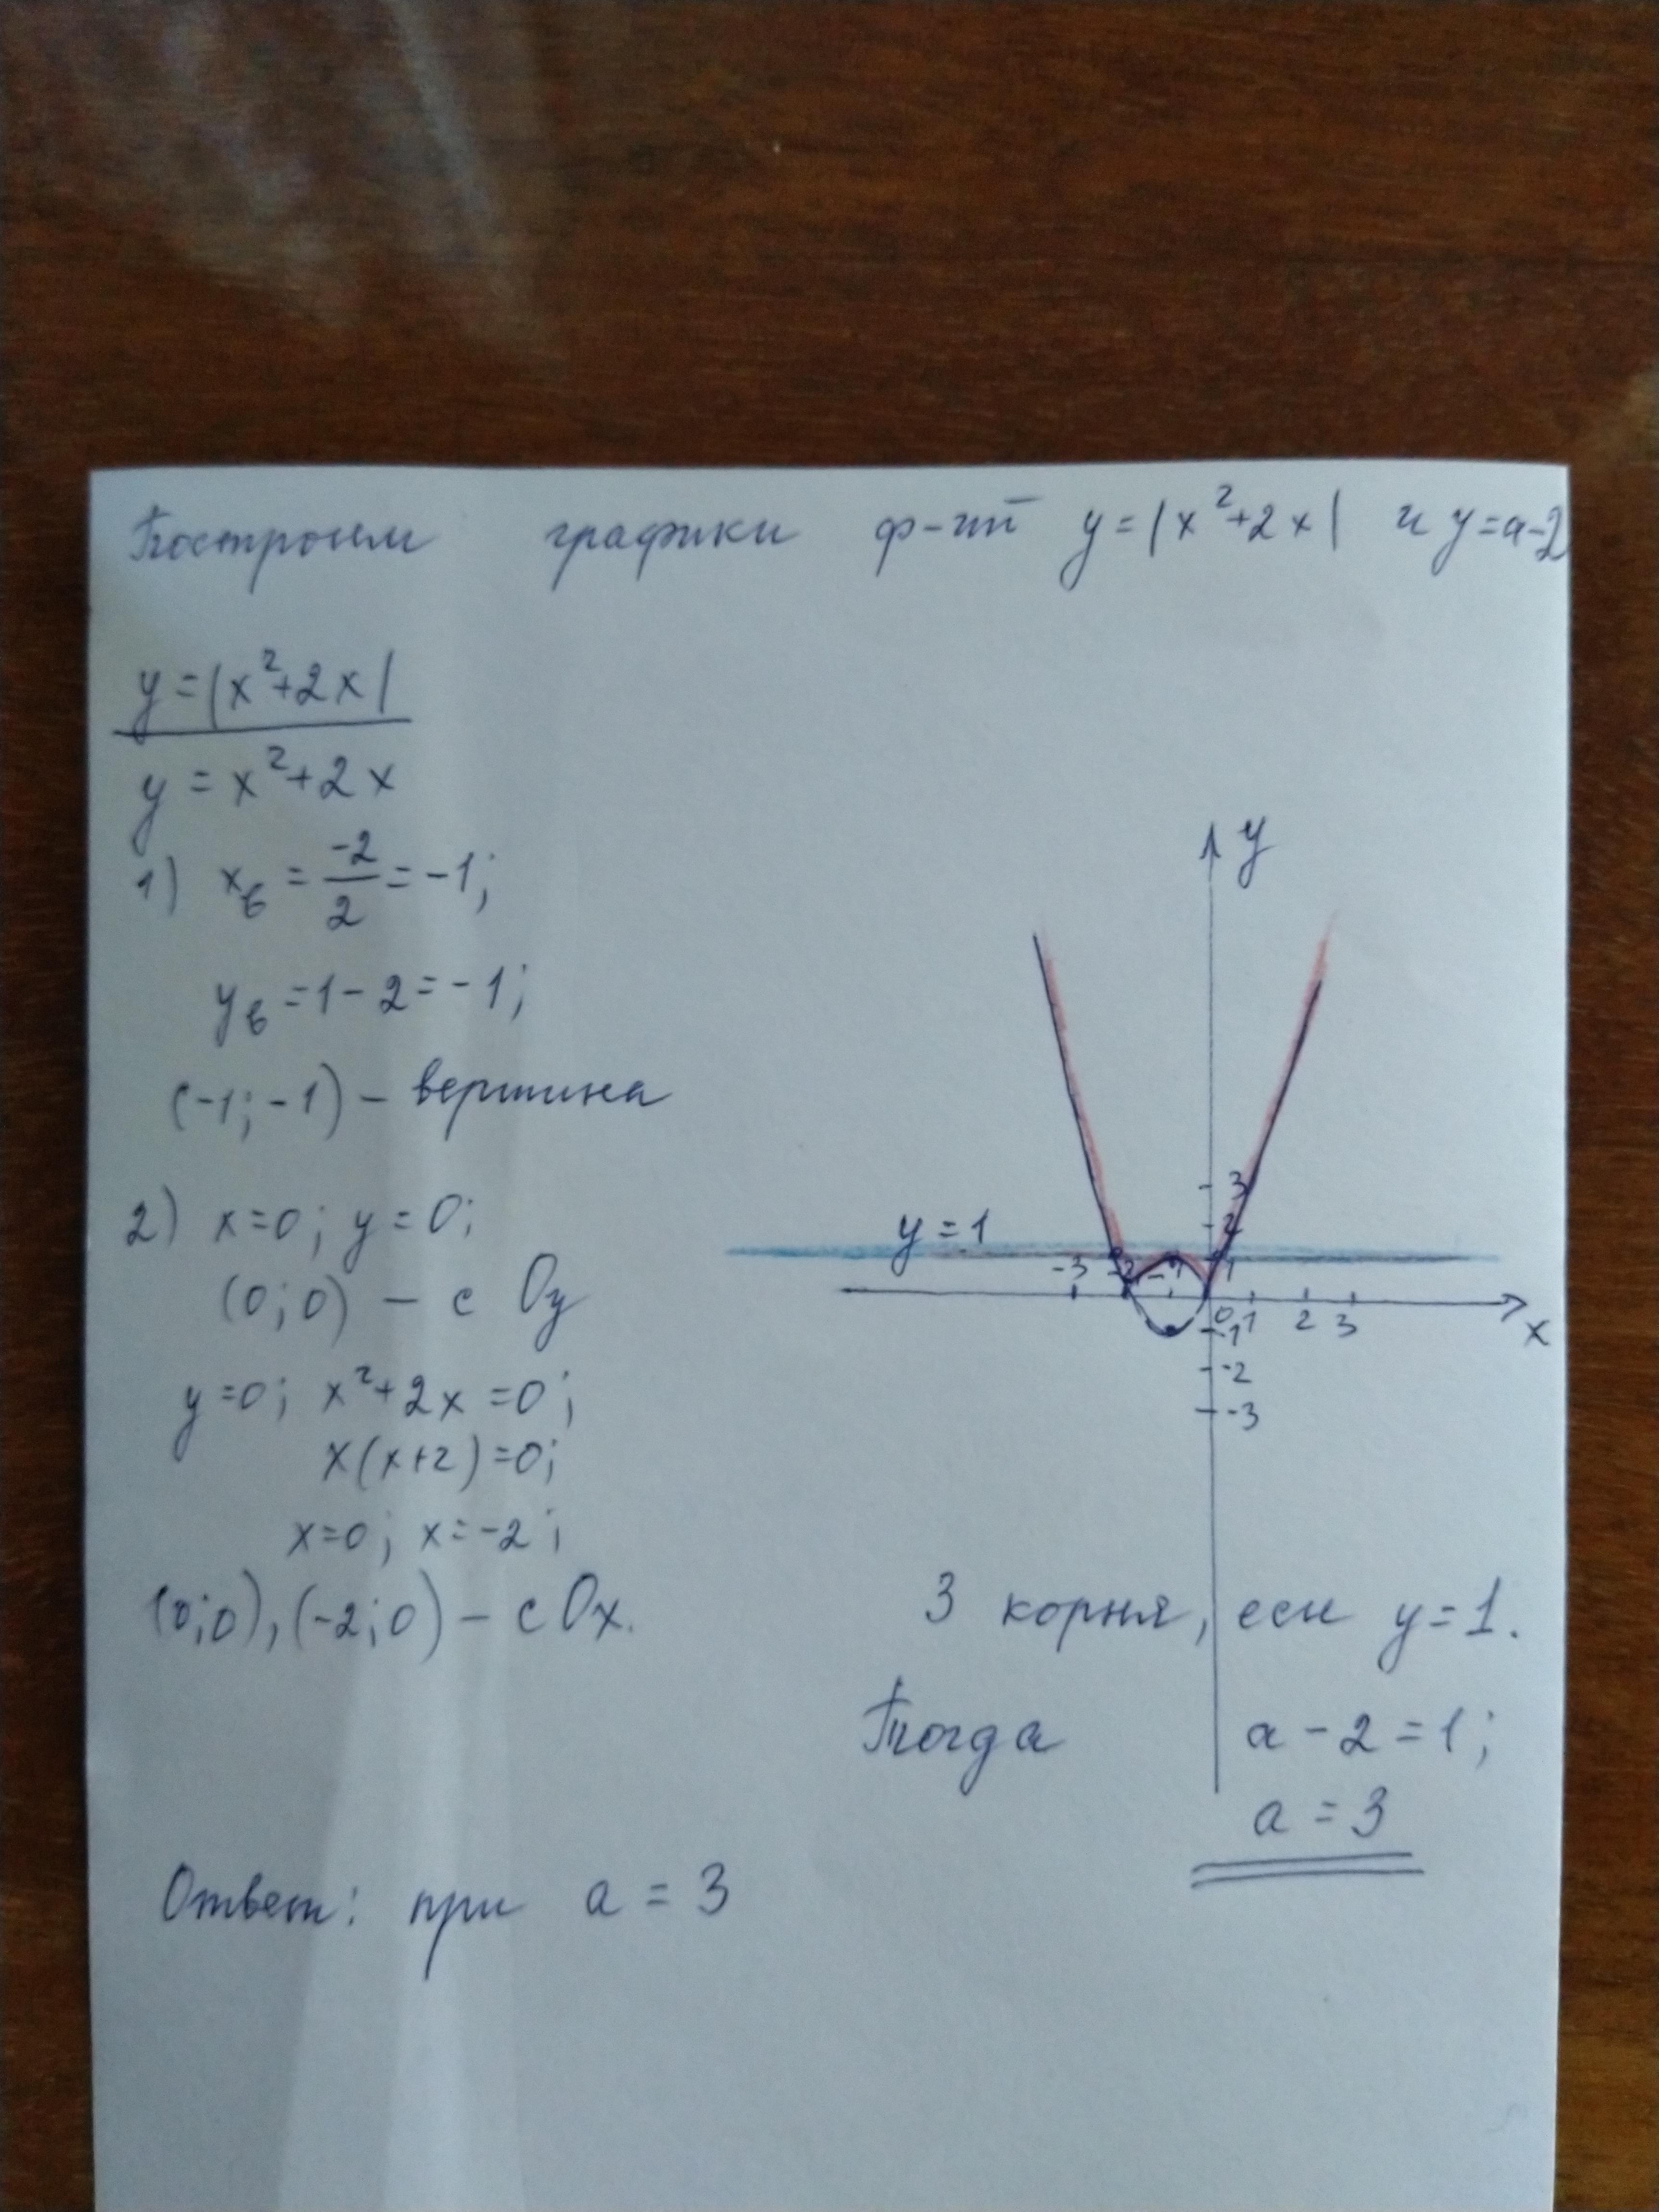 Построим графики ф-ий y=|x²+2x| и y=a-2
y=|x²+2x|
y=x²+2x
1) xв = -2/2 = -1;
yв =1-2=-1;
(-1;-1) - вершина
2) x=0; y=0;
(0;0) - с Oy
y=0; x²+2x=0;
x(x+2)=0;
x=0; x=-2;
(0;0),(-2;0) - с Ox.
y
3
2
1
y=1
-3 -2 -1
0 1 2 3
x
-1
-2
-3
3 корня, если y=1.
Тогда a-2=1;
a=3
Ответ: при a=3